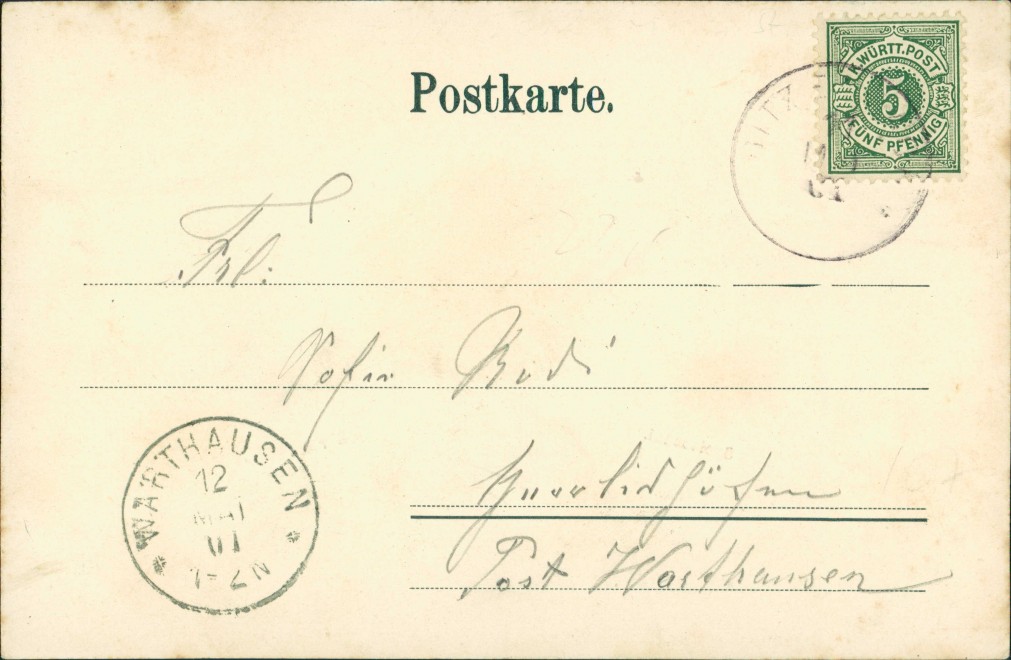 Postkarte.
K. WÜRTT. POST
5
FÜNF PFENNIG
Frl.
Sofie
Post Warthausen
WARTHAUSEN
12
MAI
01
1-2N